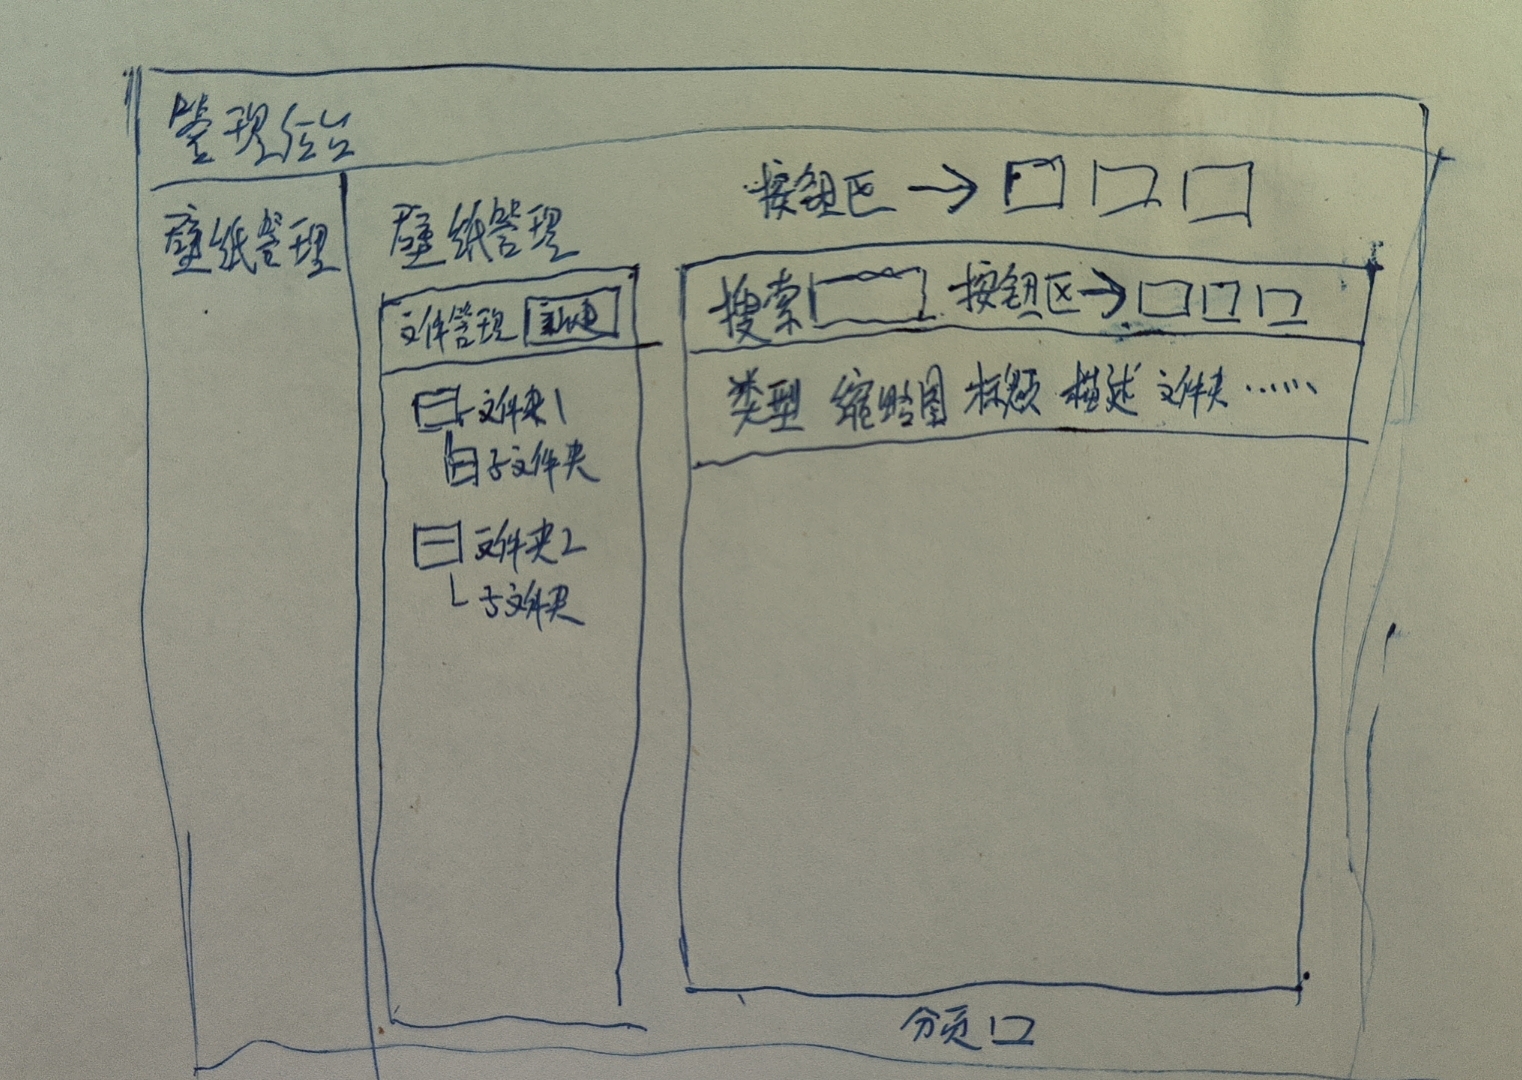 管理后台
壁纸管理
壁纸管理
按钮区
文件管理 新建
文件夹1
子文件夹
文件夹2
子文件夹
搜索 按钮区
类型 缩略图 标题 描述 文件夹 ……
分页